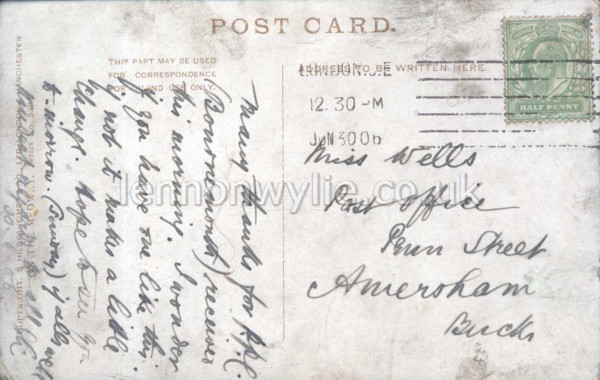 POST CARD.
THIS PART MAY BE USED
FOR CORRESPONDENCE
FOR INLAND USE ONLY.
ADDRESS TO BE WRITTEN HERE.
LONDON. S.E
12.30-M
JUN 30 06
HALF PENNY
Many thanks for
(Bournemouth) received
this morning. I wonder
if you have one like this
if not it makes a little
change. Hope to see you
to-morrow. (Sunday) if all well
Miss Wells
Post Office
Penn Street
Amersham
Bucks
lennonwylie.co.uk